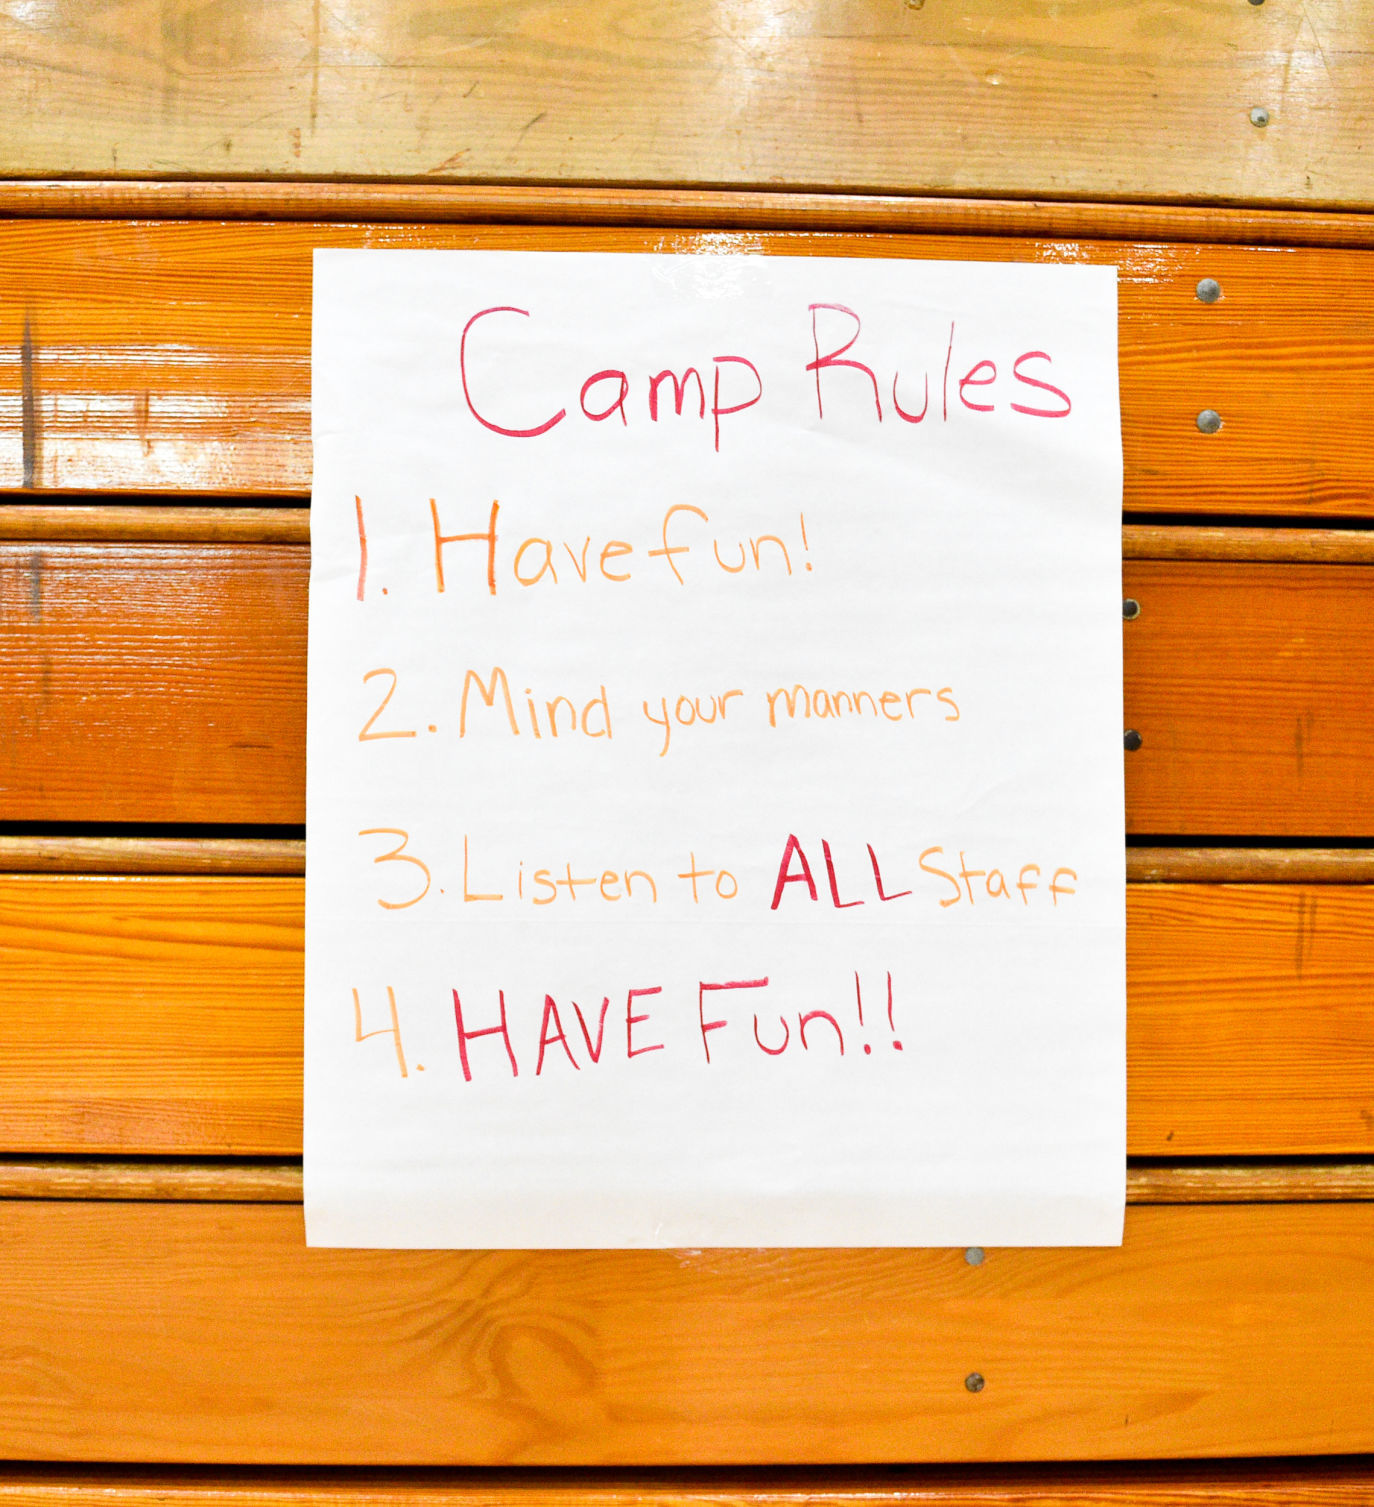 Camp Rules
1. Have fun!
2. Mind your manners
3. Listen to ALL Staff
4. HAVE Fun!!